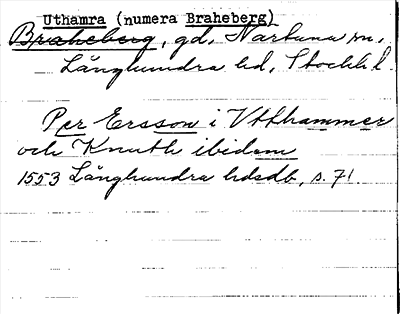 Uthamra (numera Braheberg)
Braheberg, gd, Nartuna sn,
Långhundra hd, Stockh. l.
Per Ersson i Vtthammer
och Knuth ibidem
1553 Långhundra hdsdb, s. 71.